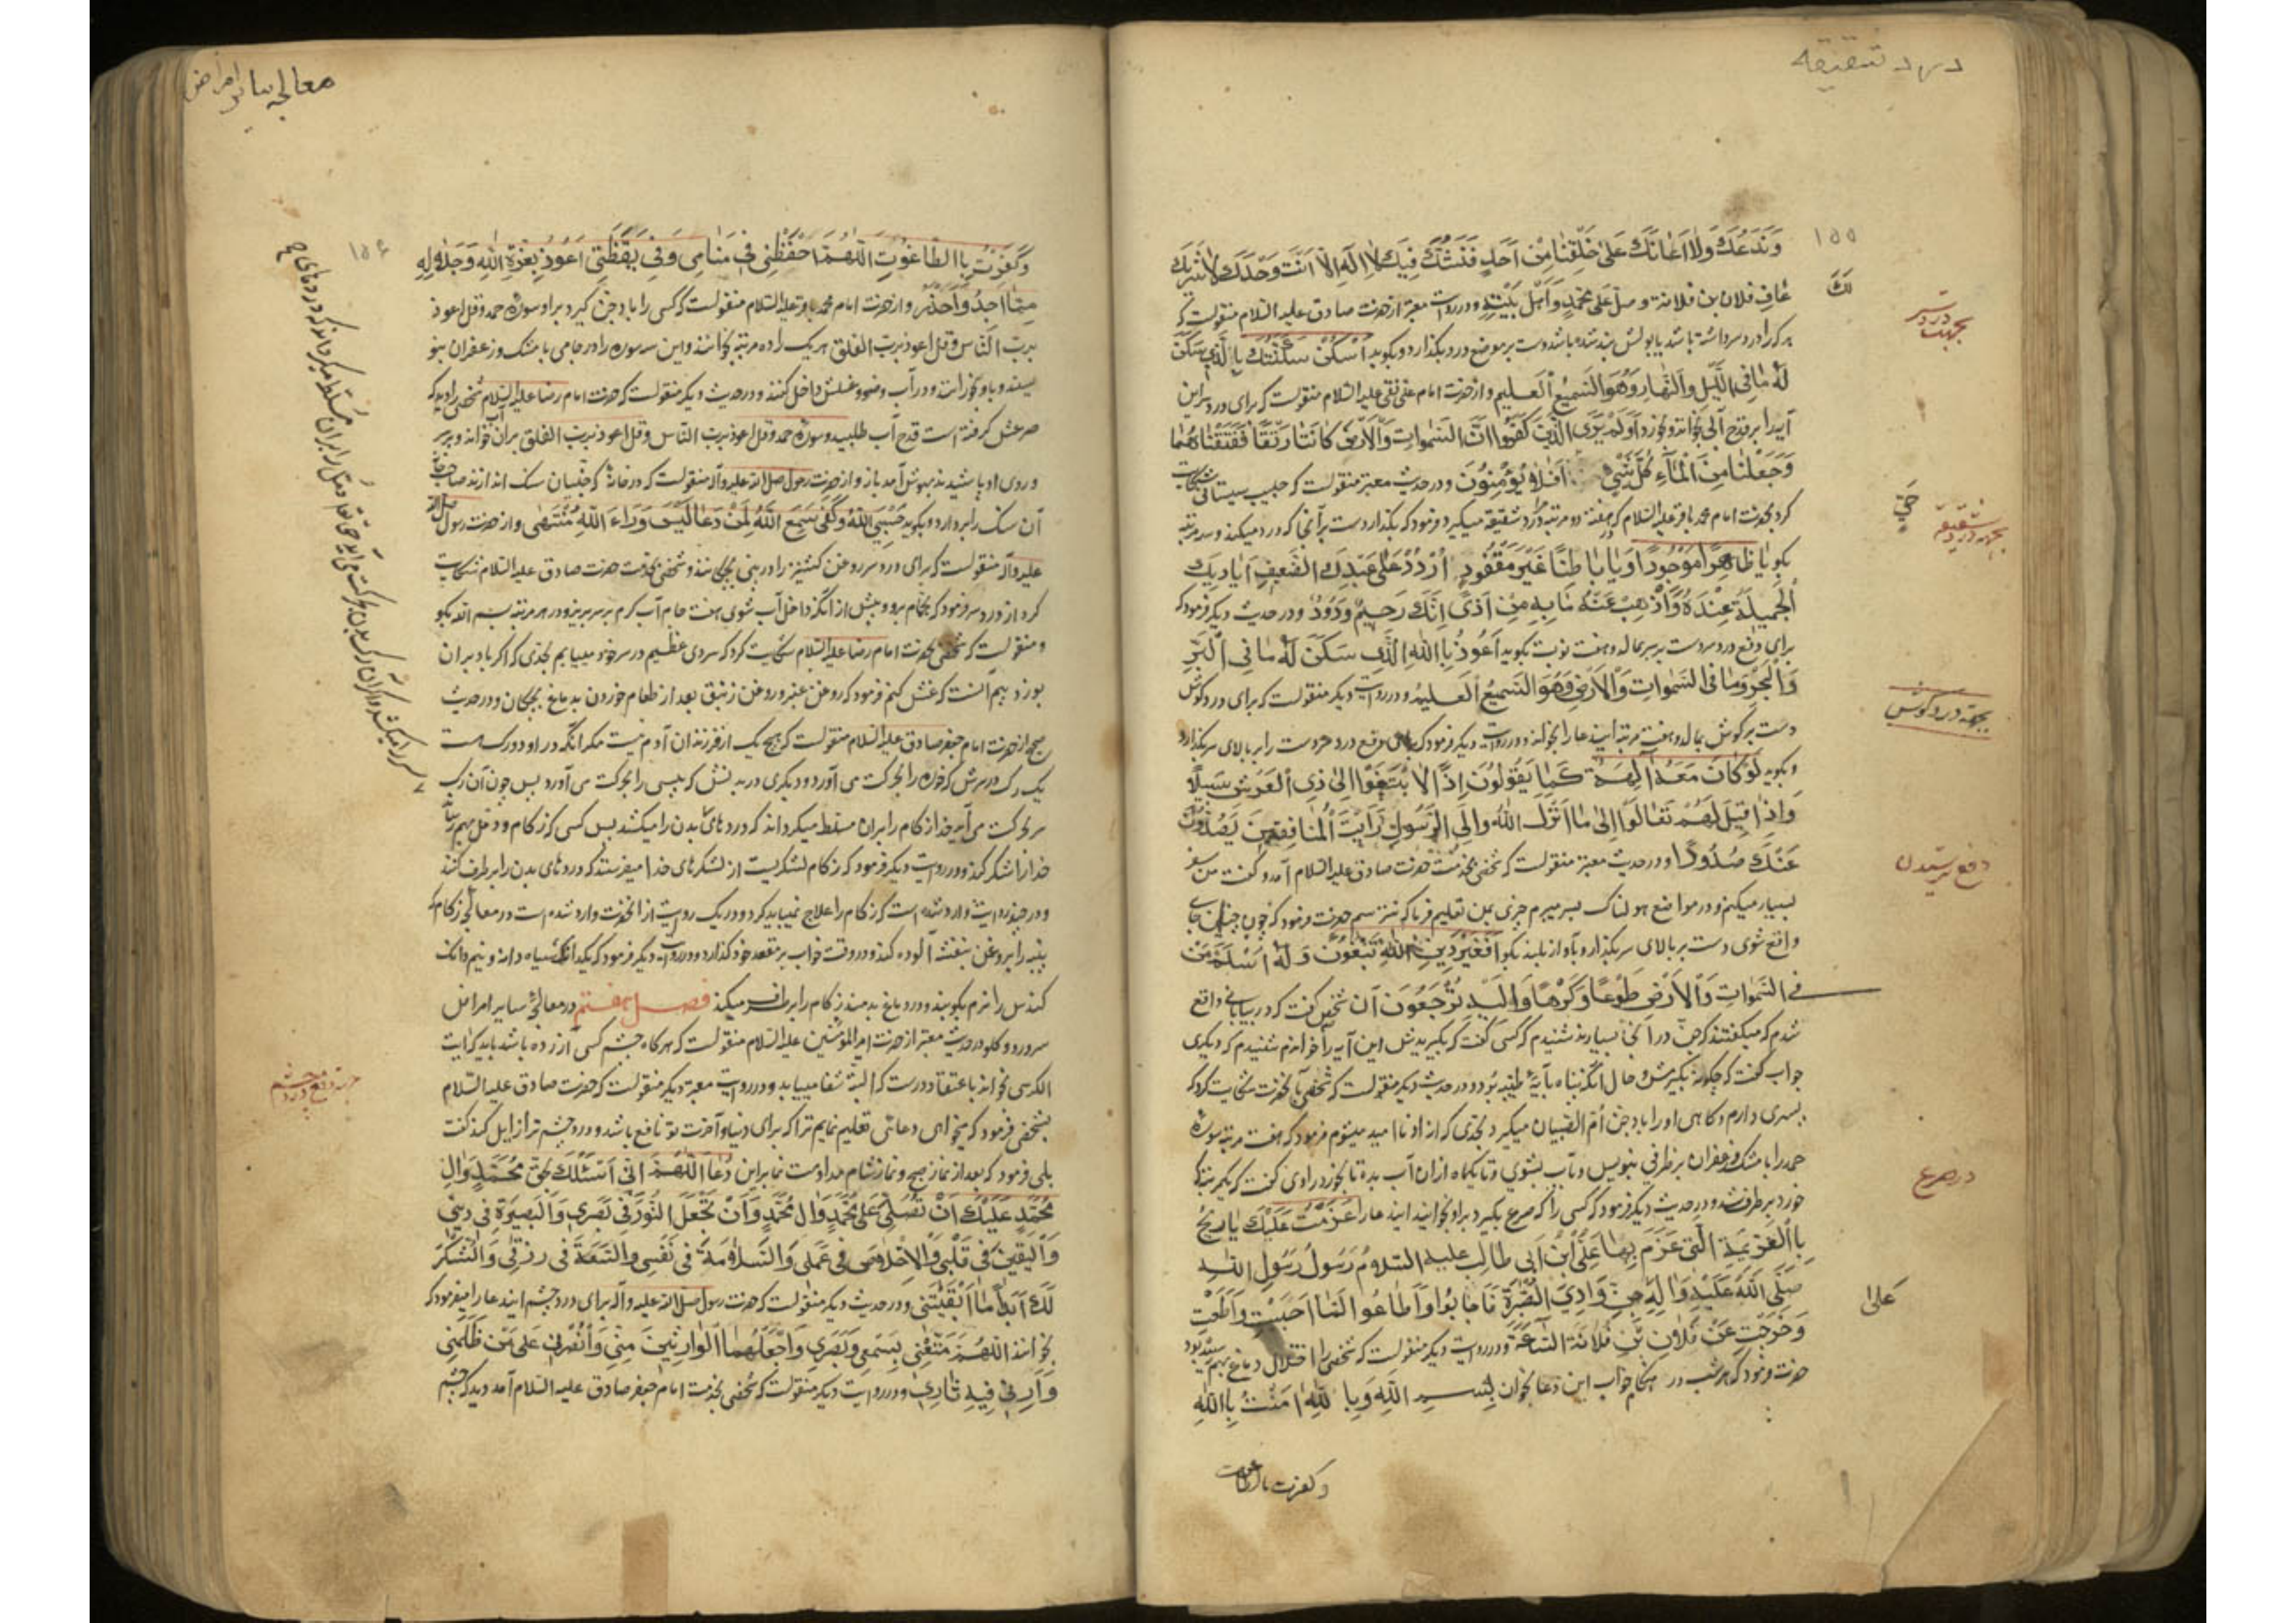 درد شقیقه
۱۵۵
وَنَدَعُكَ وَلَا اَعٰانَكَ عَلىٰ خَلْقِنٰا مِنْ اَحَدٍ فَنَشُكَّ فِيكَ لٰا اِلٰهَ اِلّٰا اَنْتَ وَحْدَكَ لٰا شَرِيكَ
لَكَ
عٰافِ فلان بن فلانة وصلّ عَلىٰ مُحَمَّدٍ وَاَهْلِ بَيْتِهِ ودر روایت معتبر از حضرت صادق علیه السلام منقولست که
بجهت درد سر
هر که را درد سر داشته باشد یا بولش بند شده باشد دست بر موضع درد بگذارد و بگوید اُسْكُنْ سَكَّنْتُكَ بِالَّذِي سَكَنَ
لَهُ مٰا فِي اللَّيْلِ وَالنَّهٰارِ وَهُوَ السَّمِيعُ الْعَلِيمِ و از حضرت امام علی نقی علیه السلام منقولست که برای درد سر این
آیه را بر قدح آبی بخواند و بخورد اَوَلَمْ يَرَى الَّذِينَ كَفَرُوا اَنَّ السَّمٰوٰاتِ وَالْاَرْضَ كٰانَتٰا رَتْقًا فَفَتَقْنٰاهُمٰا
وَجَعَلْنٰا مِنَ الْمٰاءِ كُلَّ شَيْءٍ اَفَلٰا يُؤْمِنُونَ ودر حدیث معتبر منقولست که حبیب سیستانی شکایت
حَيٍّ
کرد بحضرت امام محمد باقر علیه السلام که هفته دو مرتبه درد شقیقه میگیرد فرمود که بگذار دست بر آنجا که درد میکند و سه مرتبه
بجهة درد شقیقه
بگو يٰا ظٰاهِرًا مَوْجُودًا وَيٰا بٰاطِنًا غَيْرَ مَفْقُودٍ اُرْدُدْ عَلىٰ عَبْدِكَ الضَّعِيفِ اَيٰادِيكَ
الْجَمِيلَةَ عِنْدَهُ وَاَذْهِبْ عَنْهُ مٰا بِهِ مِنْ اَذًى اِنَّكَ رَحِيمٌ وَدُودٌ ودر حدیث دیگر فرمود که
برای دفع درد سر دست بر سر بمالد و هفت نوبت بگوید اَعُوذُ بِاللّٰهِ الَّذِي سَكَنَ لَهُ مٰا فِي الْبَرِّ
وَالْبَحْرِ وَمٰا فِي السَّمٰوٰاتِ وَالْاَرْضِ وَهُوَ السَّمِيعُ الْعَلِيمُ ودر روایت دیگر منقولست که برای درد گوش
بجهة درد گوش
دست بر گوش بمال و هفت مرتبه این دعا را بخواند و در روایت دیگر فرمود که برای دفع درد سر دست را بر بالای سر بگذارد
و بگوید لَوْ كٰانَ مَعَهُ آلِهَةٌ كَمٰا يَقُولُونَ اِذًا لَابْتَغَوْا اِلىٰ ذِي الْعَرْشِ سَبِيلًا
وَاِذٰا قِيلَ لَهُمْ تَعٰالَوْا اِلىٰ مٰا اَنْزَلَ اللّٰهُ وَاِلَى الرَّسُولِ رَاَيْتَ الْمُنٰافِقِينَ يَصُدُّونَ
عَنْكَ صُدُودًا ودر حدیث معتبر منقولست که شخصی بخدمت حضرت صادق علیه السلام آمد و گفت من سفر
دفع ترسیدن
بسیار میکنم و در مواضع هولناک بسر میبرم چیزی بمن تعلیم فرما که نترسم حضرت فرمود که چون چنین جای
واقع شوی دست بر بالای سر بگذار و بآواز بلند بگو اَفَغَيْرَ دِينِ اللّٰهِ تَبْغُونَ وَلَهُ اَسْلَمَ مَنْ
فِي السَّمٰوٰاتِ وَالْاَرْضِ طَوْعًا وَكَرْهًا وَاِلَيْهِ تُرْجَعُونَ آن شخص گفت که در بیابانی واقع
شدم که میگفتند که جنّ در آنجا بسیارند شنیدم که کسی گفت که بگیریدش این آیه را خواندم شنیدم که دیگری
جواب گفت که چگونه بگیرمش و حال آنکه پناه بآیهٔ طیبه برد و در حدیث دیگر منقولست که شخصی بآنحضرت شکایت کرد که
پسری دارم و گاهی او را باد جن اُمّ الصّبیان میگیرد بحدّی که از او ناامید میشوم فرمود که هفت مرتبه سورهٔ
حمد را با مشک و زعفران بر ظرفی بنویس و بآب بشوی و تا یکماه از آن آب بده تا بخورد راوی گفت که یکمرتبه که
در صرع
خورد بر طرف شد و در حدیث دیگر فرمود که کسی را که صرع بگیرد بر او بخوانید این دعا را عَزَمْتُ عَلَيْكَ يٰا رِيحُ
بِالْعَزِيمَةِ الَّتِي عَزَمَ بِهٰا عَلِيُّ بْنُ اَبِي طٰالِبٍ عليه السلام رَسُولُ رَسُولِ اللّٰهِ
صَلَّى اللّٰهُ عَلَيْهِ وَآلِهِ جِنِّ وٰادِيَ الصَّبْرَةِ فَاَجٰابُوا وَاَطٰاعُوا لَمّٰا اَجَبْتِ وَاَطَعْتِ
عَلىٰ
وَخَرَجْتِ عَنْ فُلٰانِ بْنِ فُلٰانَةَ السّٰاعَةَ ودر روایت دیگر منقولست که شخصی را اختلال دماغ بهم رسیده بود
حضرت فرمود که هر شب در هنگام خواب این دعا بخوان بِسْمِ اللّٰهِ وَبِاللّٰهِ اٰمَنْتُ بِاللّٰهِ
وکفرت بالطاغوت
معالجه سایر امراض
۱۵۶
وَكَفَرْتُ بِالطّٰاغُوتِ اَللّٰهُمَّ احْفَظْنِي فِي مَنٰامِي وَفِي يَقْظَتِي اَعُوذُ بِعِزَّةِ اللّٰهِ وَجَلٰالِهِ
مِمّٰا اَجِدُ وَاَحْذَرُ و از حضرت امام محمد باقر علیه السلام منقولست که کسی را باد جن گیرد بر او سورهٔ حمد و قل اعوذ
بربّ النّاس و قل اعوذ بربّ الفلق هر یک را ده مرتبه بخوانند و این سه سوره را در جامی با مشک و زعفران بنو
یسند و باو بخورانند و در آب وضو و غسلش داخل کنند و در حدیث دیگر منقولست که حضرت امام رضا علیه السلام شخصی را دید که
صرعش گرفته است قدح آب طلبید و سورهٔ حمد و قل اعوذ بربّ النّاس و قل اعوذ بربّ الفلق بر آن آب خواند و بر سر
و روی او پاشیدند بهوش آمد باز و از حضرت رسول صلی الله علیه وآله منقولست که در خانهٔ که جنّیان سنگ اندازند صاحب خانه
آن سنگ را بردارد و بگوید حَسْبِيَ اللّٰهُ وَكَفىٰ سَمِعَ اللّٰهُ لِمَنْ دَعٰا لَيْسَ وَرٰاءَ اللّٰهِ مُنْتَهىٰ و از حضرت رسول صلی الله
علیه وآله منقولست که برای درد سر روغن کشنیز را در بینی بچکانند و شخصی بخدمت حضرت صادق علیه السلام شکایت
کرد از درد سر فرمود که بحمّام برو و پیش از آنکه داخل آب شوی هفت جام آب گرم بر سر بریز و در هر مرتبه بسم الله بگو
و منقولست که شخصی بحضرت امام رضا علیه السلام شکایت کرد که سردی عظیم در سر خود مییابم بحدّی که اگر باد بر آن
بوزد بیم آنست که غش کنم فرمود که روغن عنبر و روغن زنبق بعد از طعام خوردن بدماغ بچکان و در حدیث
صحیح از حضرت امام جعفر صادق علیه السلام منقولست که هیچ یک از فرزندان آدم نیست مگر آنکه در او دو رگ هست
یک رگ در سرش که خوره را بحرکت می آورد و دیگری در بدنش که پیسی را بحرکت می آورد پس چون آن رگ
سر بحرکت می آید خدا زکام را بر آن مسلط میگرداند که دردهای بدن را میکشد پس کسی که زکام و دمّل بهم رساند
خدا را شکر کند و در روایت دیگر فرمود که زکام لشکریست از لشکرهای خدا میفرستد که دردهای بدن را بر طرف کند
و در چند روایت وارد شده است که زکام را علاج نمیباید کرد و در یک روایت از آنحضرت وارد شده است در معالجه زکام که
پنبه را بروغن بنفشه آلوده کند و در وقت خواب بر مقعد خود گذارد و در روایت دیگر فرمود که یکدانگ سیاه دانه و نیم دانگ
کندش را نرم بکوبند و در دماغ بدمند زکام را بر طرف میکند فصل هفتم در معالجهٔ سایر امراض
سر و رو و گلو در حدیث معتبر از حضرت امیر المؤمنین علیه السلام منقولست که هر گاه چشم کسی آزرده باشد باید که آیت
الکرسی بخواند باعتقاد درست که البتّه شفا مییابد و در روایت معتبر دیگر منقولست که حضرت صادق علیه السلام
جهة دفع درد چشم
بشخصی فرمود که میخواهی دعائی تعلیم نمایم ترا که برای دنیا و آخرت تو نافع باشد و درد چشم ترا زایل کند گفت
بلی فرمود که بعد از نماز صبح و نماز شام مداومت نما بر این دُعا اَللّٰهُمَّ اِنِّي اَسْئَلُكَ بِحَقِّ مُحَمَّدٍ وَآلِ
مُحَمَّدٍ عَلَيْكَ اَنْ تُصَلِّيَ عَلىٰ مُحَمَّدٍ وَآلِ مُحَمَّدٍ وَاَنْ تَجْعَلَ النُّورَ فِي بَصَرِي وَالْبَصِيرَةَ فِي دِينِي
وَالْيَقِينَ فِي قَلْبِي وَالْاِخْلٰاصَ فِي عَمَلِي وَالسَّلٰامَةَ فِي نَفْسِي وَالسَّعَةَ فِي رِزْقِي وَالشُّكْرَ
لَكَ اَبَدًا مٰا اَبْقَيْتَنِي ودر حدیث دیگر منقولست که حضرت رسول صلی الله علیه وآله برای درد چشم این دعا را میفرمود که
بخوانند اَللّٰهُمَّ مَتِّعْنِي بِسَمْعِي وَبَصَرِي وَاجْعَلْهُمَا الْوٰارِثَيْنِ مِنِّي وَانْصُرْنِي عَلىٰ مَنْ ظَلَمَنِي
وَاَرِنِي فِيهِ ثٰارِي ودر روایت دیگر منقولست که شخصی بخدمت امام جعفر صادق علیه السلام آمد دید که چشم